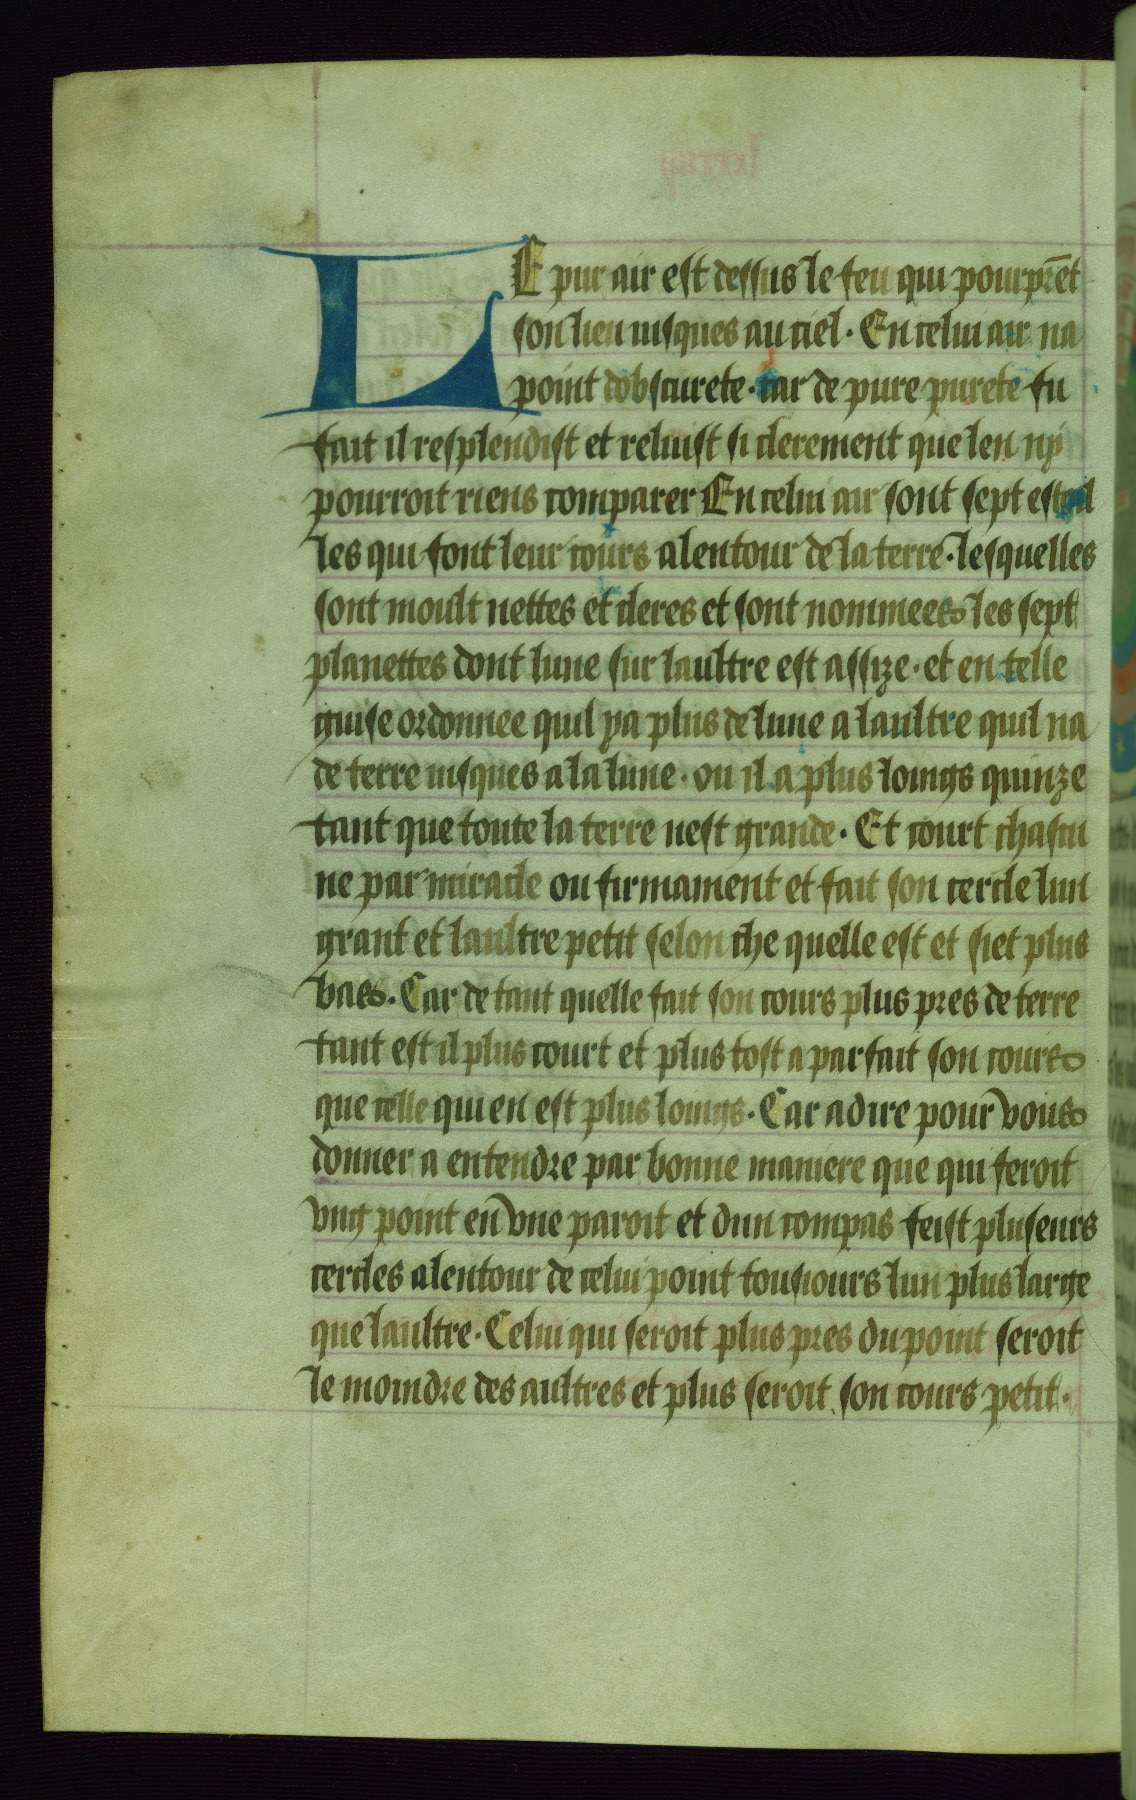 LE pur air est dessus le feu qui pourprēt
son lieu iusques au ciel. En celui air na
point dobscurete. car de pure purete fu
fait il resplendist et reluist si clerement que len ny
pourroit riens comparer En celui air sont sept estoil
les qui font leur cours alentour de la terre. lesquelles
sont moult nettes et cleres et sont nommees les sept
planettes dont lune sur laultre est assize. et en telle
guise ordonnee quil ya plus de lune a laultre quil na
de terre iusques a la lune. ou il a plus loings quinze
tant que toute la terre nest grande. Et court chascu
ne par miracle ou firmament et fait son cercle lun
grant et laultre petit selon che quelle est et siet plus
bas. Car de tant quelle fait son cours plus pres de terre
tant est il plus court et plus tost a parfait son cours
que celle qui en est plus loings. Car a dire pour vous
donner a entendre par bonne maniere que qui feroit
vng point en vne paroit et dun compas feist pluseurs
cercles alentour de celui point tousiours lun plus large
que laultre. Celui qui seroit plus pres du point seroit
le moindre des aultres et plus seroit son cours petit.